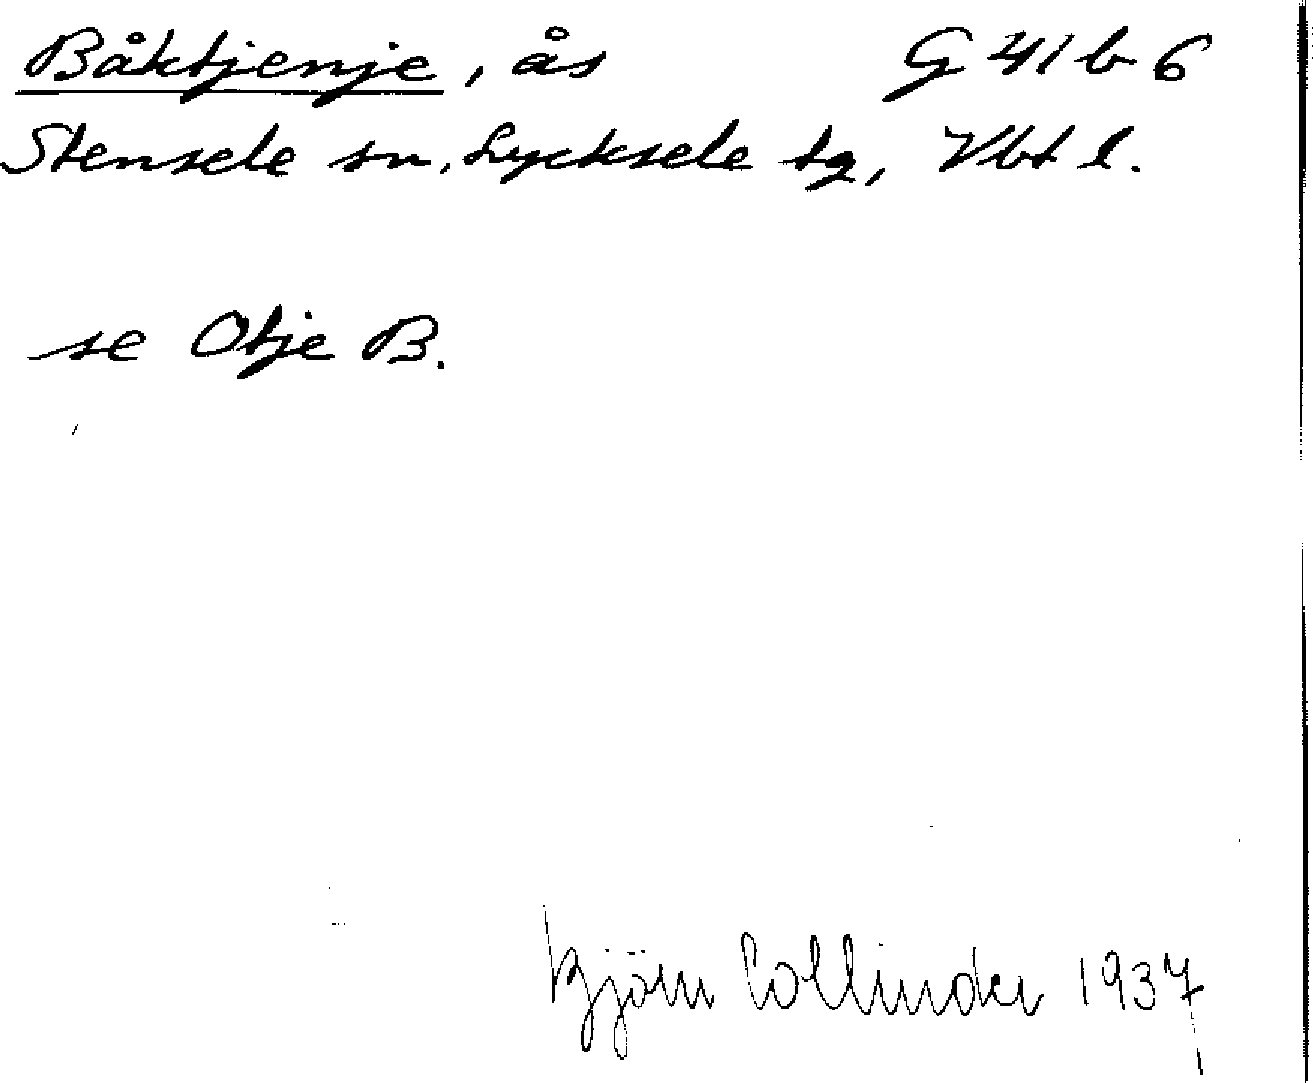 Båktjenje, ås G 41 b 6
Stensele sn, Lycksele tg, Vbt l.
se Otje B.
Björn Collinder 1937